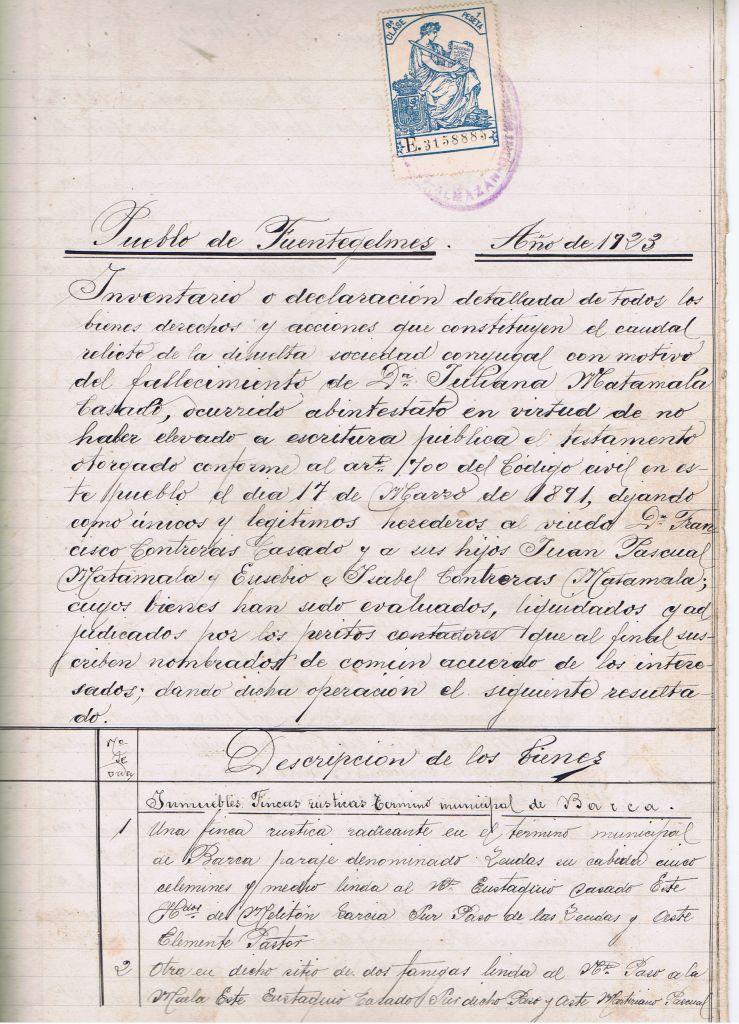 8ª CLASE 1 PESETA
E.3158885
ALMAZAN
Pueblo de Fuentegelmes. Año de 1923
Inventario o declaración detallada de todos los
bienes derechos y acciones que constituyen el caudal
relicto de la disuelta sociedad conyugal con motivo
del fallecimiento de Dª. Juliana Matamala
Casado, ocurrido abintestato en virtud de no
haber elevado a escritura pública el testamento
otorgado conforme al artº 1700 del Código civil en es-
te pueblo el dia 17 de Marzo de 1891, dejando
como únicos y legitimos herederos al viudo Dn Fran
cisco Contreras Casado y a sus hijos Juan Pascual
Matamala y Eusebio e Isabel Contreras Matamala;
cuyos bienes han sido evaluados, liquidados y ad
judicados por los peritos contadores que al final sus-
criben nombrados de común acuerdo de los intere-
sados; dando dicha operación el siguiente resulta-
do.
Nº de orden
Descripcion de los bienes
Inmuebles. Fincas rusticas Termino municipal de Barca.
1 Una finca rustica radicante en el termino municipal
de Barca paraje denominado Zendas su cabida cinco
celemines y medio linda al Nte Eustaquio Casado Este
Hdos de Melitón Garcia Sur Paso de las Zendas y Oeste
Clemente Pastor
2 Otra en dicho sitio de dos fanegas linda al Nte Paso a la
Muela Este Eustaquio Casado Sur dicho Paso y Oeste Pascual